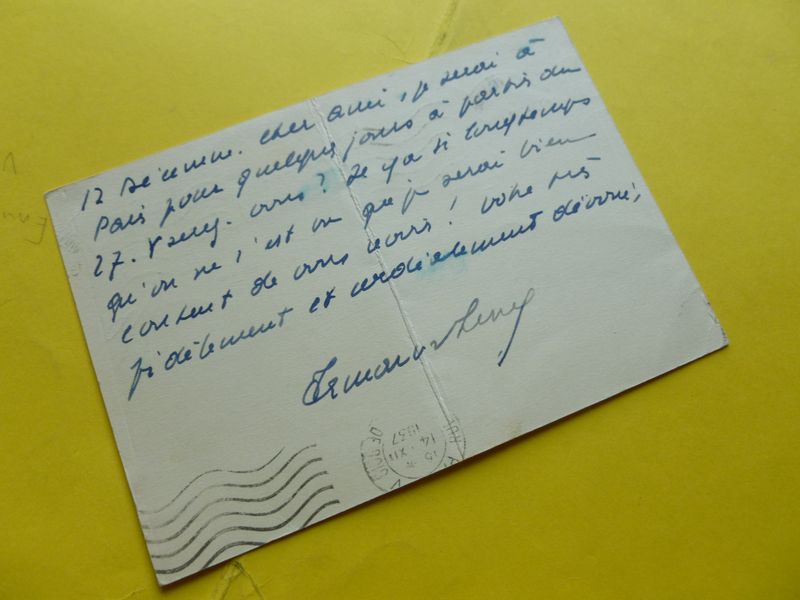 12 Décembre. Cher ami, je serai à
Paris pour quelques jours à partir du
27. Y serez-vous? Il y a si longtemps
qu'on ne s'est vu que je serai bien
content de vous revoir! Votre très
fidèlement et cordialement dévoué,
15
14 XII
1937